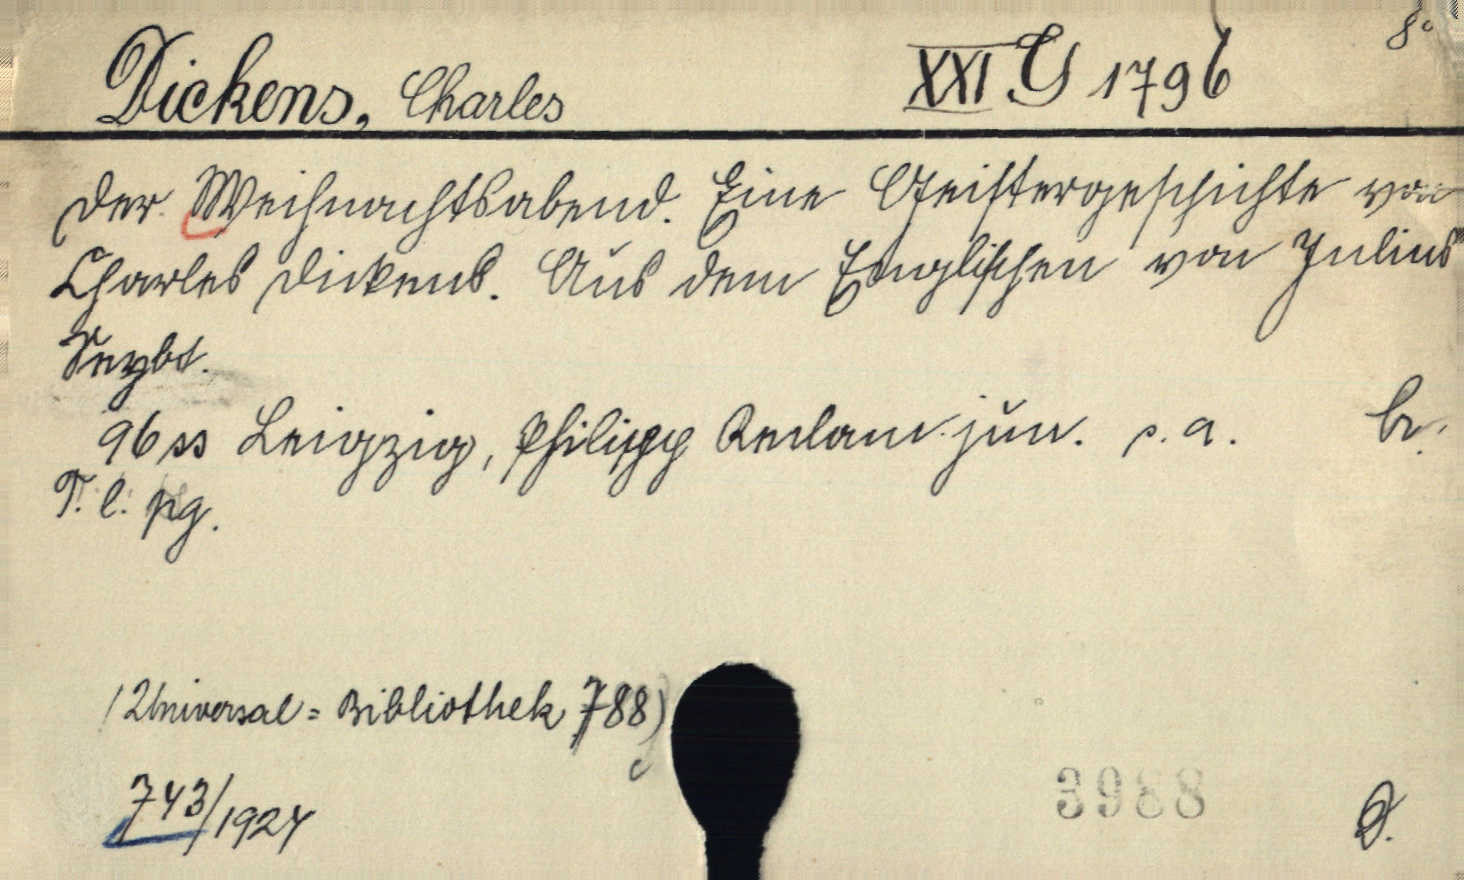 8°
Dickens, Charles XXI G 1796
Der Weihnachtsabend. Eine Geistergeschichte von
Charles Dickens. Aus dem Englischen von Julius
Seybt.
96 ss Leipzig, Philipp Reclam jun. s. a. br.
T. l. pg.
(Universal=Bibliothek 788)
743/1924
3988